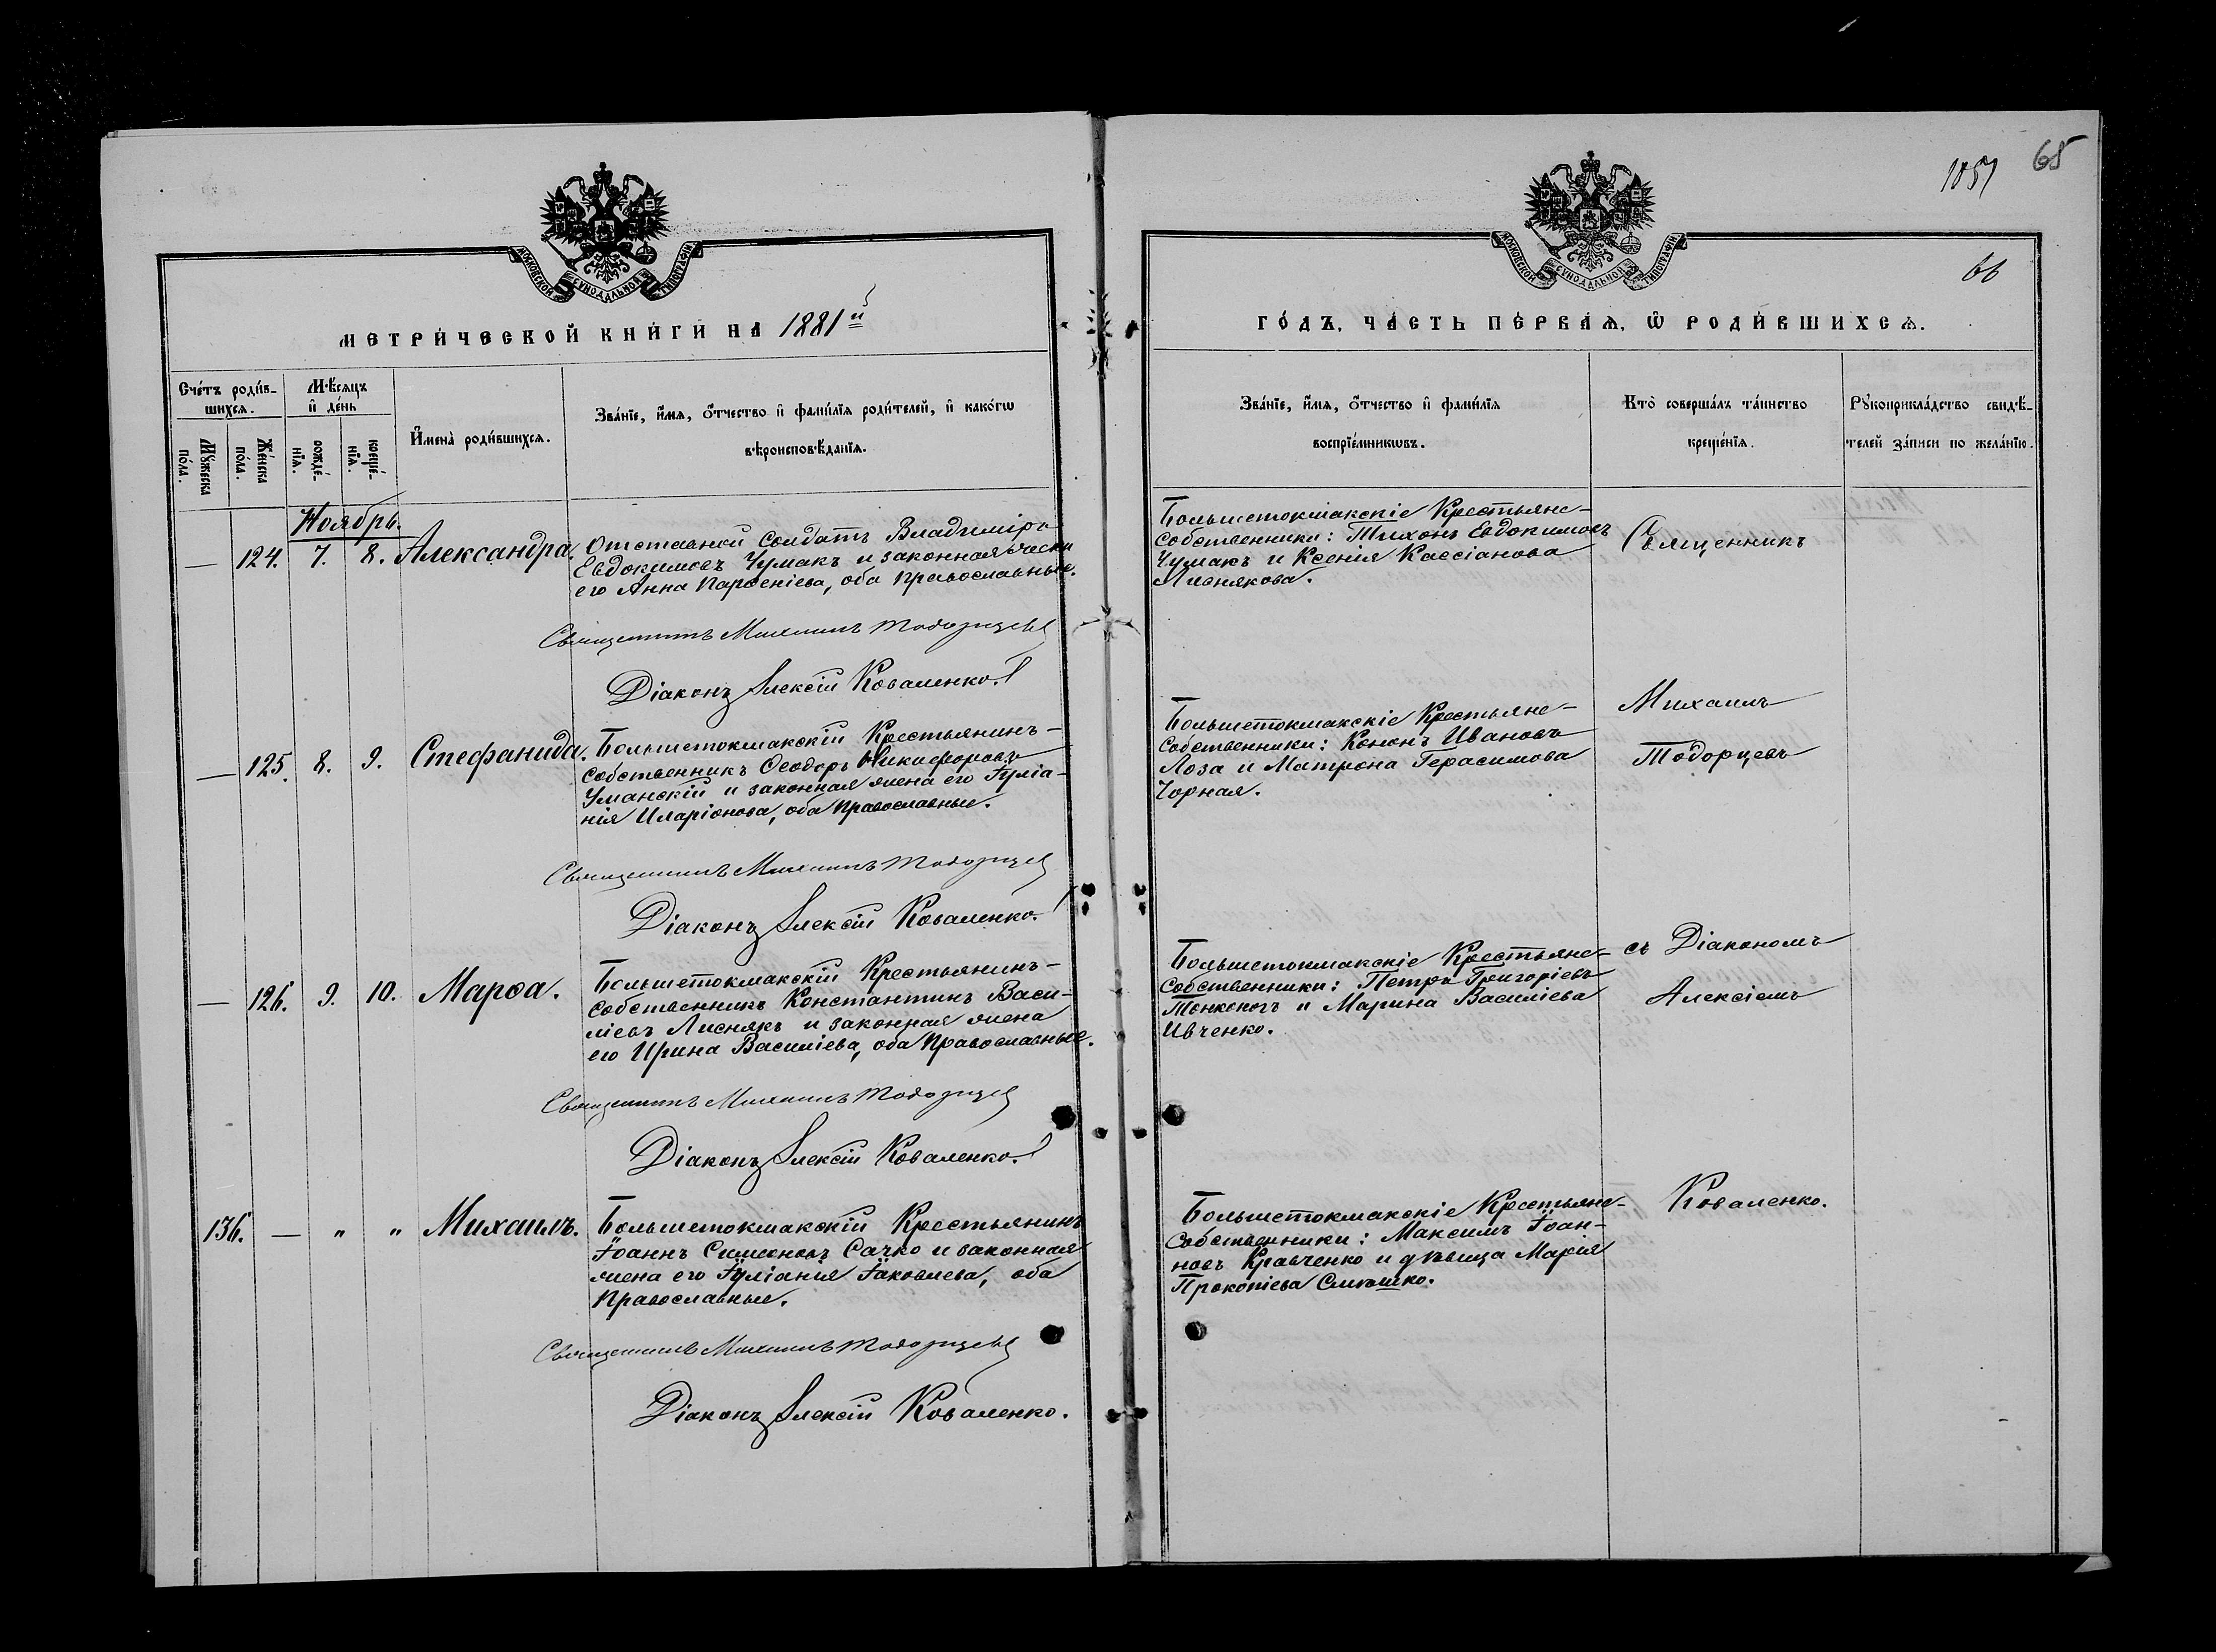 МОСКОВСКОЙ СѴНОДАЛЬНОЙ ТИПОГРАФІИ
МЕТРИ́ЧЕСКОЙ КНИ́ГИ НА 1881й
Сче́тъ роди́в-
шихсѧ.
Мѣ́сѧцъ
и҆ де́нь
Мꙋ́жеска
по́ла.
Же́нска
по́ла.
рожде́-
нїѧ.
креще́-
нїѧ.
И҆мена̀ роди́вшихсѧ.
Зва́нїе, и҆́мѧ, ѻ҆́тчество и҆ фами́лїѧ роди́телей, и҆ како́гѡ
вѣроисповѣ́данїѧ.
Ноябрь.
— 124. 7. 8. Александра.
Отставной Солдатъ Владиміръ
Евдокимовъ Чумакъ и законная жена
его Анна Парѳеніева, оба православные.
Священникъ Михаилъ Тодорцевъ
Діаконъ Алексій Коваленко.
— 125. 8. 9. Стефанида.
Большетокмакскій Крестьянинъ-
собственникъ Ѳеодоръ Никифоровъ
Уманскій и законная жена его Іуліа-
нія Иларіонова, оба православные.
Священникъ Михаилъ Тодорцев
Діаконъ Алексій Коваленко.
— 126. 9. 10. Марѳа.
Большетокмакскій Крестьянинъ-
собственникъ Константинъ Васи-
ліевъ Лиснякъ и законная жена
его Ирина Василіева, оба Православные.
Священникъ Михаилъ Тодорцев
Діаконъ Алексій Коваленко.
136. — " " Михаилъ.
Большетокмакскій Крестьянинъ
Іоаннъ Симеоновъ Сачко и законная
жена его Іуліанія Іаковлева, оба
Православные.
Священникъ Михаилъ Тодорцевъ
Діаконъ Алексій Коваленко.
1051 65
МОСКОВСКОЙ СѴНОДАЛЬНОЙ ТИПОГРАФІИ
66
ГО́ДЪ, ЧА́СТЬ ПЕ́РВАѦ, Ѡ҆ РОДИ́ВШИХСѦ.
Зва́нїе, и҆́мѧ, ѻ҆́тчество и҆ фами́лїѧ
воспрїе́мникѡвъ.
Кто̀ соверша́лъ та́инство
креще́нїѧ.
Рꙋкоприкла́дство свидѣ́-
телей за́писи по жела́нїю.
Большетокмакскіе Крестьяне-
Собственники: Тихонъ Евдокимовъ
Чумакъ и Ксенія Кассіанова
Лиснякова.
Священникъ
Большетокмакскіе Крестьяне-
Собственники: Кононъ Ивановъ
Лоза и Матрона Герасимова
Чорная.
Михаилъ
Тодорцевъ
Большетокмакскіе Крестьяне-
Собственники: Петръ Григоріевъ
Тонконогъ и Марина Василіева
Ивченко.
съ Діакономъ
Алексіемъ
Большетокмакскіе Крестьяне-
Собственники: Максимъ Іоан-
новъ Кравченко и дѣвица Марія
Прокопіева Смѣшко.
Коваленко.